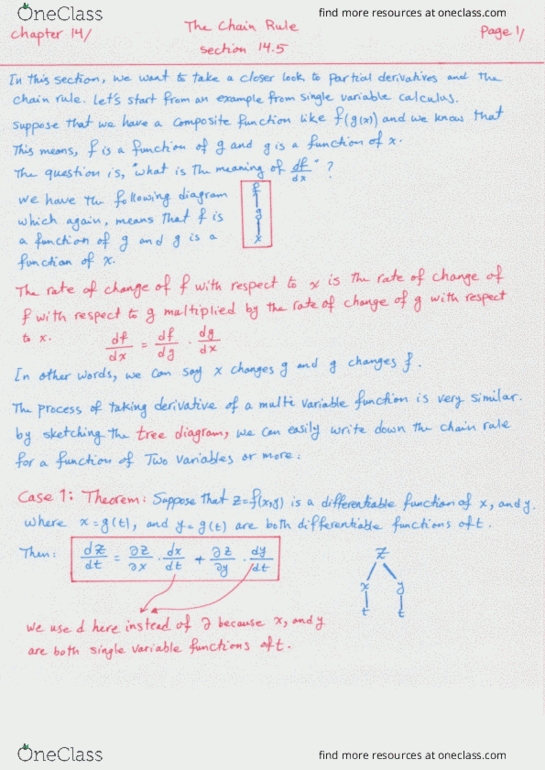 OneClass
find more resources at oneclass.com
chapter 14/ The Chain Rule Page 1/
section 14.5
In this section, we want to take a closer look to partial derivatives and the
chain rule. Let's start from an example from single variable calculus.
Suppose that we have a composite function like f(g(x)) and we know that
This means, f is a function of g and g is a function of x.
The question is, "what is the meaning of df/dx" ?
we have the following diagram
which again, means that f is
a function of g and g is a
function of x.
f
g
x
The rate of change of f with respect to x is the rate of change of
f with respect to g multiplied by the rate of change of g with respect
to x. df/dx = df/dg · dg/dx
In other words, we can say x changes g and g changes f.
The process of taking derivative of a multi variable function is very similar.
by sketching the tree diagram, we can easily write down the chain rule
for a function of Two variables or more:
Case 1: Theorem: Suppose that z=f(x,y) is a differentiable function of x, and y.
where x=g(t), and y=g(t) are both differentiable functions of t.
Then: dz/dt = ∂z/∂x · dx/dt + ∂z/∂y · dy/dt
z
x y
t t
we use d here instead of ∂ because x, and y
are both single variable functions of t.
OneClass
find more resources at oneclass.com